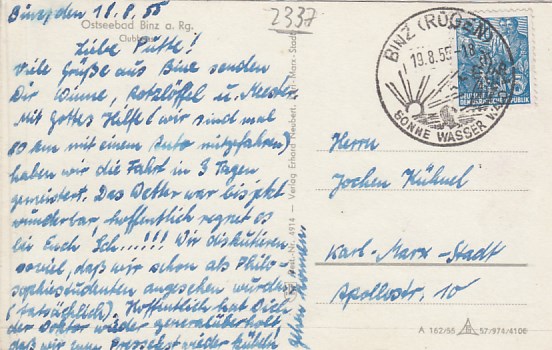 Binz, den 18.8.55
Ostseebad Binz a. Rg.
2337
Liebe Putte!
Viele Grüße aus Binz senden
Dir Winne, Rotzlöffel u.
Mit Gottes Hilfe (wir sind mal
80 km mit einem Auto mitgefahren)
haben wir die Fahrt in 3 Tagen
gemeistert. Das Wetter war bis jetzt
wunderbar, hoffentlich regnet es
bei Euch Sch...!!! Wir diskutieren
soviel, daß wir schon als Philo-
sophiestudenten angesehen wurden
(tatsächlich). Hoffentlich hat Dich
der Doktor wieder generalüberholt,
daß wir zum Pressefest wieder
gehen können.
4914 - Verlag Erhard Neubert, Karl-Marx-Stadt
BINZ (RÜGEN)
19.8.55-18
SONNE WASSER
DEMOKRATISCHE REPUBLIK
Herrn
Jochen Kühnel
Karl-Marx-Stadt
Apollostr. 10
A 162/55 57/974/4106